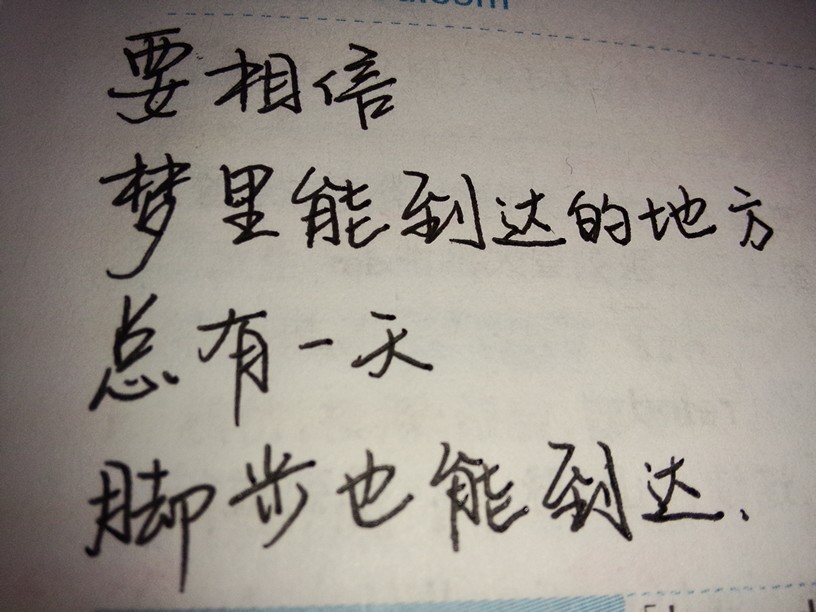 .com
要相信
梦里能到达的地方
总有一天
脚步也能到达.